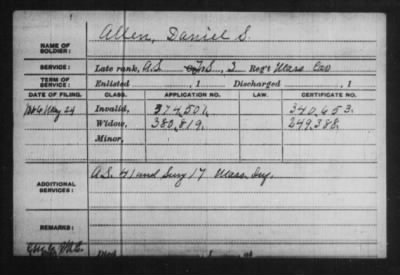 Allen, Daniel S.
NAME OF SOLDIER:
SERVICE: Late rank, A.S. 3 Reg't Mass Cav
TERM OF SERVICE: Enlisted , 1 Discharged , 1
DATE OF FILING. CLASS. APPLICATION NO. LAW. CERTIFICATE NO.
May 24 Invalid, 374,501, 340,653.
Widow, 380,819, 249,388,
Minor,
ADDITIONAL SERVICES: A.S. 41 and Surg 17 Mass. Inf.
REMARKS: